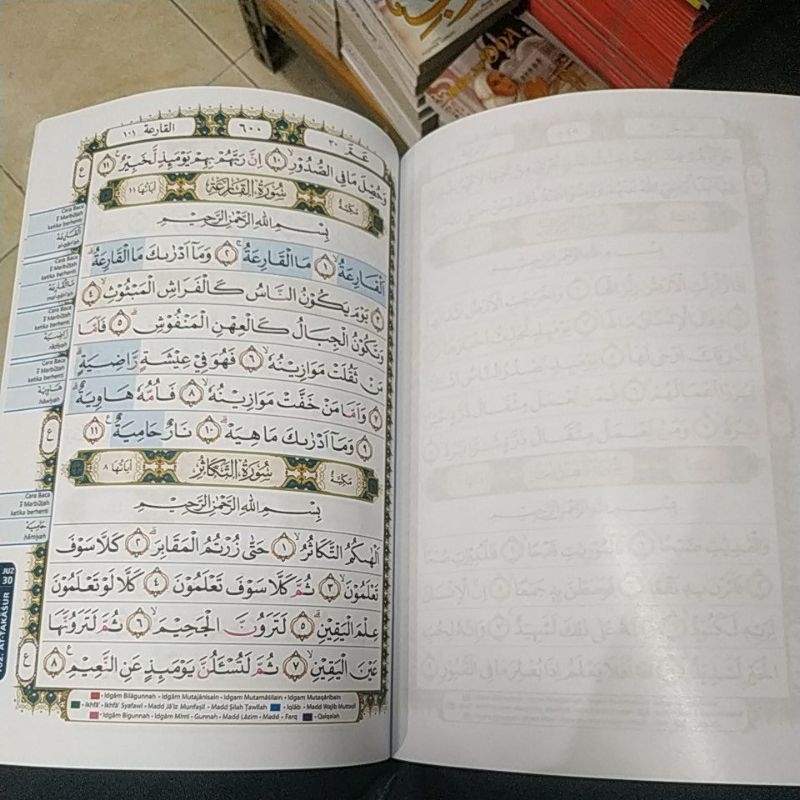 عَمَّ ٣٠
٦٠٠
القارعة ١٠١
وَحُصِّلَ مَا فِى الصُّدُوْرِۙ ١٠ اِنَّ رَبَّهُمْ بِهِمْ يَوْمَىِٕذٍ لَّخَبِيْرٌ ࣖ ١١
مَكِّيَّة
سُوْرَةُ الْقَارِعَةِ
اٰيَاتُهَا ١١
بِسْمِ اللّٰهِ الرَّحْمٰنِ الرَّحِيْمِ
اَلْقَارِعَةُۙ ١ مَا الْقَارِعَةُ ۚ ٢ وَمَآ اَدْرٰىكَ مَا الْقَارِعَةُ ۗ
٣ يَوْمَ يَكُوْنُ النَّاسُ كَالْفَرَاشِ الْمَبْثُوْثِۙ ٤
وَتَكُوْنُ الْجِبَالُ كَالْعِهْنِ الْمَنْفُوْشِۗ ٥ فَاَمَّا
مَنْ ثَقُلَتْ مَوَازِيْنُهٗۙ ٦ فَهُوَ فِيْ عِيْشَةٍ رَّاضِيَةٍۗ
٧ وَاَمَّا مَنْ خَفَّتْ مَوَازِيْنُهٗۙ ٨ فَاُمُّهٗ هَاوِيَةٌ ۗ
٩ وَمَآ اَدْرٰىكَ مَا هِيَهْۗ ١٠ نَارٌ حَامِيَةٌ ࣖ ١١
مَكِّيَّة
سُوْرَةُ التَّكَاثُرِ
اٰيَاتُهَا ٨
بِسْمِ اللّٰهِ الرَّحْمٰنِ الرَّحِيْمِ
اَلْهٰىكُمُ التَّكَاثُرُۙ ١ حَتّٰى زُرْتُمُ الْمَقَابِرَۗ ٢ كَلَّا سَوْفَ
تَعْلَمُوْنَۙ ٣ ثُمَّ كَلَّا سَوْفَ تَعْلَمُوْنَ ٤ كَلَّا لَوْ تَعْلَمُوْنَ
عِلْمَ الْيَقِيْنِۗ ٥ لَتَرَوُنَّ الْجَحِيْمَۙ ٦ ثُمَّ لَتَرَوُنَّهَا
عَيْنَ الْيَقِيْنِۙ ٧ ثُمَّ لَتُسْـَٔلُنَّ يَوْمَىِٕذٍ عَنِ النَّعِيْمِ ࣖ ٨
Cara Baca
ة Marbūṭah
ketika berhenti
اَلْقَارِعَهْ
al-qāri'ah
Cara Baca
ة Marbūṭah
ketika berhenti
مَا الْقَارِعَهْ
mal-qāri'ah
Cara Baca
ة Marbūṭah
ketika berhenti
رَاضِيَهْ
rāḍiyah
Cara Baca
ة Marbūṭah
ketika berhenti
هَاوِيَهْ
hāwiyah
Cara Baca
ة Marbūṭah
ketika berhenti
حَامِيَهْ
ḥāmiyah
ع
ع
ع
JUZ
30
102. AT-TAKĀŚUR
• Idgām Bilāgunnah • Idgām Mutajānisain • Idgam Mutamāśilain • Idgam Mutaqāribain
• Ikhfā' • Ikhfā' Syafawī • Madd Jā'iz Munfaṣil • Madd Ṣilah Ṭawīlah • Iqlāb • Madd Wajib Muttaṣil
• Idgām Bigunnah • Idgām Mīmī • Gunnah • Madd Lāzim • Madd • Farq • Qalqalah